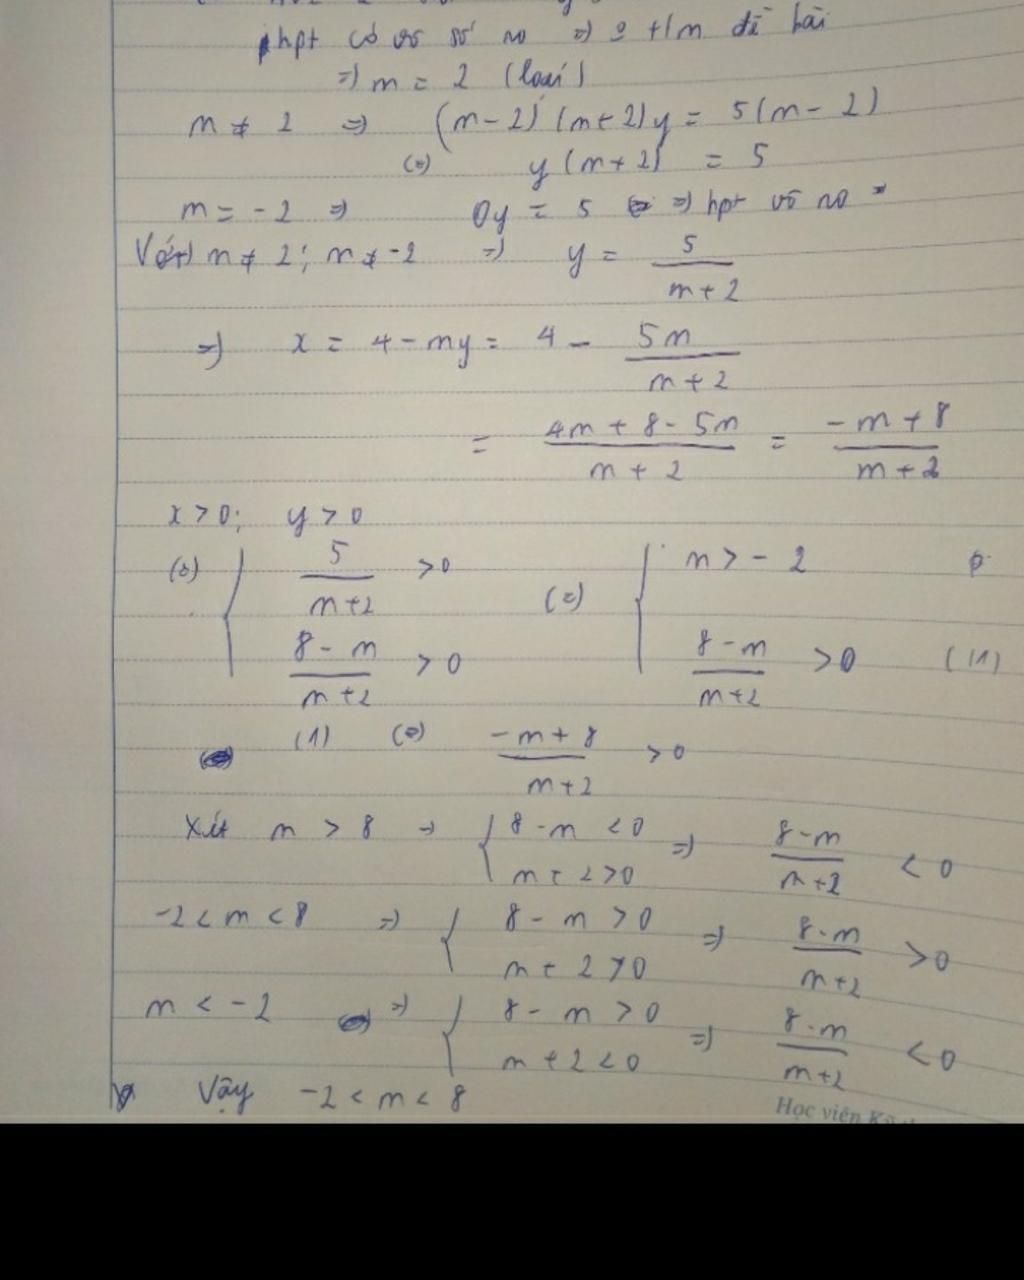 phpt có vô số no => 0 t/m đề bài
=> m = 2 (loại)
m ≠ 2 => (m-2)(m+2)y = 5(m-2)
(=) y(m+2) = 5
m = -2 => 0y = 5 => hpt vô no
Với m ≠ 2; m ≠ -2 => y = 5/(m+2)
=> x = 4 - my = 4 - 5m/(m+2)
= (4m + 8 - 5m)/(m+2) = (-m+8)/(m+2)
x > 0; y > 0
(=) { 5/(m+2) > 0 (=) { m > -2
(8-m)/(m+2) > 0 (8-m)/(m+2) > 0 (1)
(1) (=) (-m+8)/(m+2) > 0
Xét m > 8 => { 8-m < 0 => (8-m)/(m+2) < 0
m+2 > 0
-2 < m < 8 => { 8-m > 0 => (8-m)/(m+2) > 0
m+2 > 0
m < -2 => { 8-m > 0 => (8-m)/(m+2) < 0
m+2 < 0
Vậy -2 < m < 8
Học viện